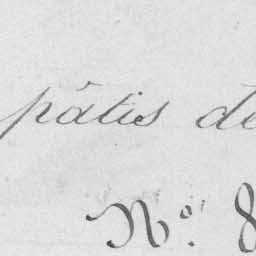 pâtis de
N° 8